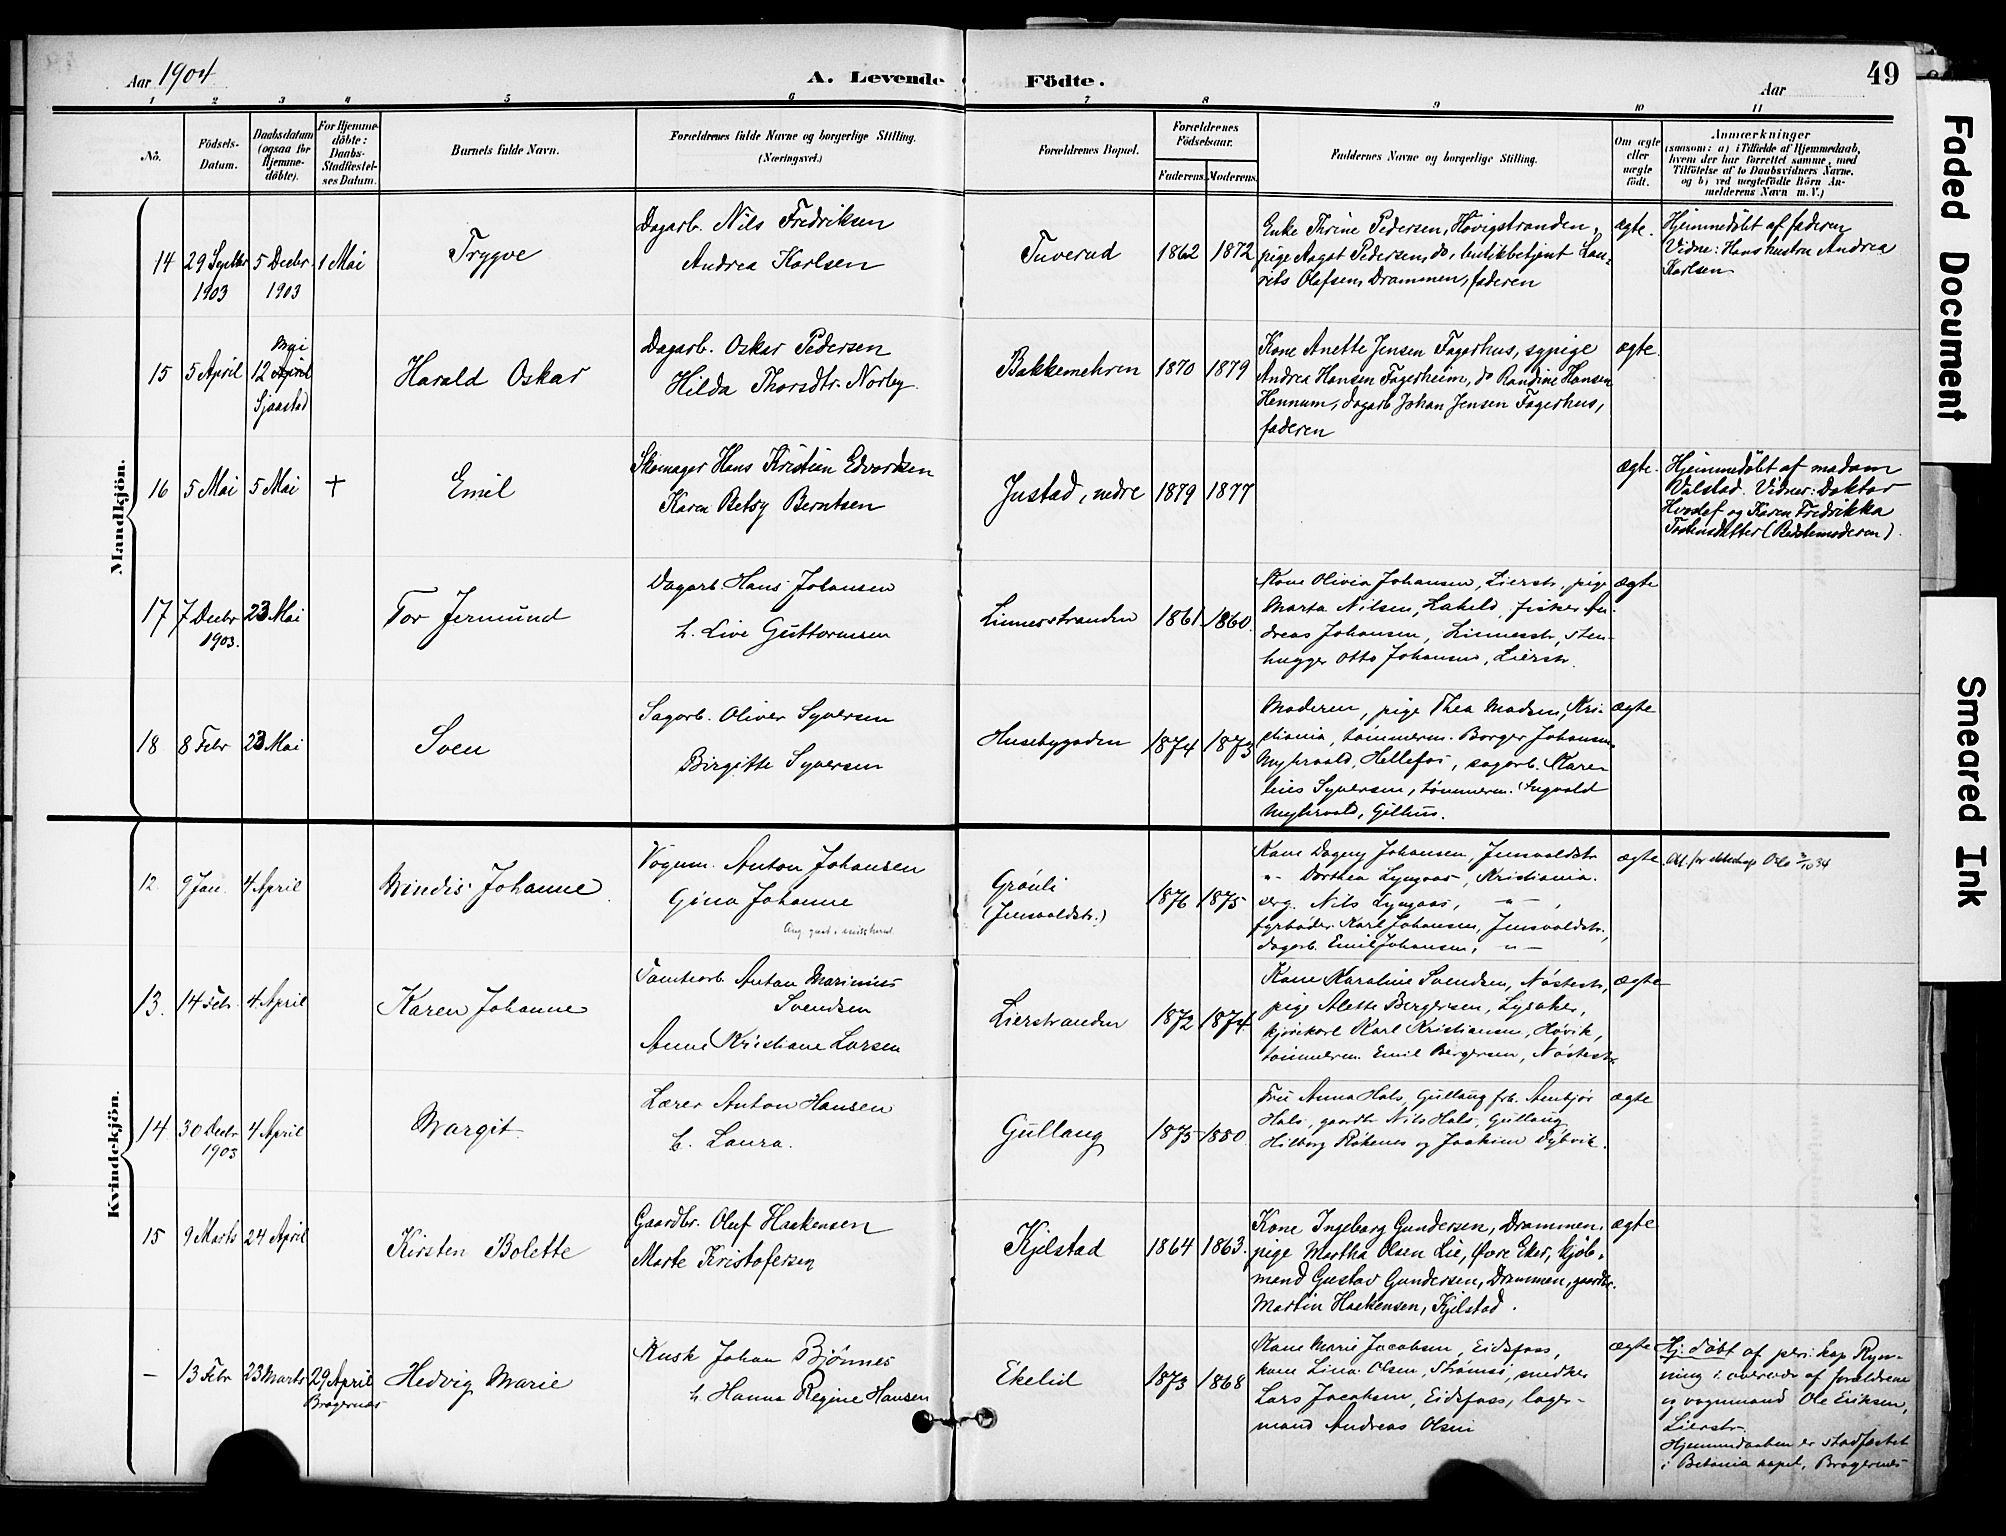 Aar 1904
A. Levende Födte.
Aar
49
1 2 3 4 5 6 7 8 9 10 11
No.
Födsels-
Datum.
Daabsdatum
(ogsaa for
Hjemme-
döbte).
For Hjemme-
döbte:
Daabs-
Stadfæstel-
ses Datum.
Barnets fulde Navn.
Forældrenes fulde Navne og borgerlige Stilling.
(Næringsvei.)
Forældrenes Bopæl.
Forældrenes
Födselsaar.
Faderens. Moderens.
Faddernes Navne og borgerlige Stilling.
Om ægte
eller
uægte
födt.
Anmærkninger
(saasom: a) i Tilfælde af Hjemmedaab,
hvem der har forrettet samme, med
Tilföielse af to Daabsvidners Navne,
og b) ved uægtefödte Börn An-
melderens Navn m. V.)
Mandkjön.
14
29 Septbr
1903
5 Decbr
1903
1 Mai
Trygve
Dagarb. Nils Fredriksen
Andrea Karlsen
Tuverud
1862
1872
Enke Thrine Pedersen, Høvigstranden,
pige Aagot Pedersen, do, butikbetjent Lau-
rits Olafsen, Drammen, faderen
ægte.
Hjemmedøbt af faderen
Vidne: Hans hustru Andrea
Karlsen
15
5 April
Mai
12 April
Sjaastad
Harald Oskar
Dagarb. Oskar Pedersen
Hilda Thorsdtr. Norby
Bakkemehren
1870
1879
Kone Anette Jensen Fagerhus, sypige
Andrea Hansen Fagerheim, do Randine Hansen
Hennum, dagarb Johan Jensen Fagerhus,
faderen
ægte.
16
5 Mai
5 Mai
+
Emil
Skomager Hans Kristian Edvardsen
Karen Betsy Berntsen
Justad, nedre
1879
1877
ægte.
Hjemmedøbt af madam
Valstad. Vidner: Doktor
og Karen Fredrikka
(Bedstemoderen).
17
7 Decbr
1903.
23 Mai
Tor Jermund
Dagarb. Hans Johansen
h. Live Guttormsen
Linnesstranden
1861
1860.
Kone Olivia Johansen, Lierstr, pige
Marta Nilsen, Laheld, fisker An-
dreas Johansen, Linnesstr, sten-
hugger Otto Johansen, Lierstr.
ægte
18
8 Febr
23 Mai
Sven
Sagarb. Oliver Syversen
Birgitte Syversen
Husebygaden
1874
1873
Moderen, pige Thea Madsen, Kri-
stiania, tømmerm. Borger Johansen
Myhrvold, Hellefos, sagarb. Kare-
lius Syversen, tømmerm. Ingvald
Myhrvold, Gilhus.
ægte
Kvindekjön.
12.
9 Jan.
4 April
Mindis Johanne
Vognm. Anton Johansen
Gina Johanne
Grønli
(Jensvoldstr.)
1876
1875
Kone Dagny Johansen, Jensvoldstr
" Dorthea Lyngaas, Kristiania.
serg. Nils Lyngaas, - " - ,
fyrbøder Karl Johansen, Jensvoldstr.,
dagarb. Emil Johansen, - " -
ægte
Att. for ekteskap Oslo 3/10 34
13.
14 Febr.
4 April
Karen Johanne
Tomtearb. Anton Marinius
Svendsen
Anne Kristiane Larsen
Lierstranden
1872
1874
Kone Karoline Svendsen, Nøstestr,
pige Alette Bergersen, Lysaker,
kjørekarl Karl Kristiansen, Høvik,
tømmerm. Emil Bergersen, Nøstestr
ægte
14
30 Decbr
1903
4 April
Margit
Lærer Anton Hansen
h. Laura.
Gullaug
1875
1880
Fru Anna Hals, Gullaug frk.
Hals, gaardbr Nils Hals, Gullaug,
Hilborg Røkenes og Joakim Dybvik.
ægte
15
9 Marts
24 April
Kirsten Bolette
Gaardbr. Oluf Haakensen
Marte Kristofersen
Kjelstad
1864
1863.
Kone Ingeborg Gundersen, Drammen,
pige Martha Olsen Lie, Øvre Eker, kjøb-
mand Gustav Gundersen, Drammen, gaardbr.
Martin Haakensen, Kjelstad.
ægte
-
13 Febr
23 Marts
29 April
Bragernæs
Hedvig Marie
Kusk Johan Bjønnes
h. Hanna Regine Hansen
Ekelid
1873
1868
Kone Marie Jacobsen, Eidsfoss,
kone Lina Olsen, Strømsø, smed
Lars Jacobsen, Eidsfoss, lager-
mand Andreas Olsen
ægte
Hj. døbt af pers. kap Ryn-
ning i overvær af forældrene
og vognmand Ole Eriksen,
Lierstr.
Hjemmedaaben er stadfæstet
i Betania kapel, Bragernæs
Faded Document
Smeared Ink